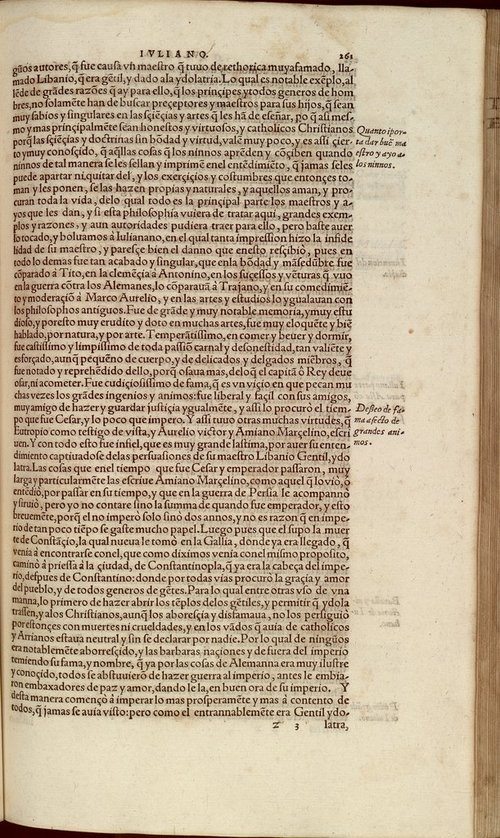 IVLIANO. 261
gūos autores, q̃ fue causa vñ maestro q̃ tuuo de rethorica muy afamado, lla-
mado Libanio, q̃ era gẽtil, y dado ala ydolatria. Lo qual es notable exẽplo, al
lẽde de grãdes razões q̃ ay para ello, q̃ los prinçipes y todos generos de hom
bres, no solamẽte han de buscar preçeptores y maestros para sus hijos, q̃ sean
muy sabios y singulares en las sçiẽçias y artes q̃ les hã de eseñar, po q̃ asi mes-
mo y mas prinçipalmẽte seã honestos y virtuosos, y catholicos Christianos
porq̃ las sçiẽçias y doctrinas sin bõdad y virtud, valẽ muy poco, y es assi çier-
to y muy conosçido, q̃ aq̃llas cosas q̃ los niños aprẽden y cõçiben quando
niñnos de tal manera se les sellan y imprimẽ en el entẽdimiẽto, q̃ jamas seles
puede apartar ni quitar del, y los exerçiçios y costumbres que entonçes to-
man y les ponen, se las hazen propias y naturales, y aquellos aman, y pro-
curan toda la vida, delo qual todo es la prinçipal parte los maestros y a-
yos que les dan, y si esta philosophia vuiera de tratar aqui, grandes exem-
plos y razones, y aun autoridades pudiera traer para ello, pero baste auer
lo tocado, y boluamos à Iulianano, en el qual tanta impression hizo la infide
lidad de su maestro, y paresçe bien el danno que enesto resçibiò, pues en
todo lo demas fue tan acabado y singular, que enla bõdad, y mãsedũbre fue
cõparado à Tito, en la clemẽçia à Antonino, en los suçessos y vẽturas q̃ vuo
en la guerra cõtra los Alemanes, lo cõparauã à Trajano, y en su comedimiẽ-
to y moderaçiõ à Marco Aurelio, y en las artes y estudios lo ygualauan con
los philosophos antiguos. Fue de grãde y muy notable memoria, y muy estu
dioso, y por esto muy erudito y doto en muchas artes, fue muy eloquẽte y biẽ
hablado, por natura, y por arte. Temperatissimo, en comer y beuer y dormir,
fue castissimo y limpissimo de toda passiõ carnal y desonestidad, tan valiẽte y
esforçado, aunq̃ pequẽno de cuerpo, y de delicados y delgados miẽbros, q̃
fue notado y reprehẽdido dello, porq̃ osaua mas, delo q̃ el capitã ò Rey deue
osar, ni acometer. Fue cudiçiosissimo de fama, q̃ es vn viçio en que pecan mu
chas vezes los grãdes ingenios y animos: fue liberal y façil con sus amigos,
muy amigo de hazer y guardar justiçia ygualmẽte, y assi lo procurò el tiem-
po que fue Cesar, y lo poco que impero. Y assi tuuo otras muchas virtudes, q̃
Eutropio como testigo de vista, y Aurelio victor y Amiano Marçelino, escri
uen. Y con todo esto fue infiel, que es muy grande lastima, por auer su enten-
dimiento captiuadose delas persuasiones de su maestro Libanio Gentil, y do
latra. Las cosas que enel tiempo que fue Cesar y emperador passaron, muy
larga y particularmẽte las escriue Amiano Marçelino, como aquel q̃ lo viò, ò
entẽdiò, por passar en su tiempo, y que en la guerra de Persia le acompanno
y siruiò, pero yo no contare sino la summa de quando fue emperador, y esto
breuemẽte, porq̃ el no imperò solo sino dos annos, y no es razon q̃ en impe-
rio de tan poco tiẽpo se gaste mucho papel. Luego pues que el supo la muer
te de Constãçio, la qual nueua le tomò en la Gallia, donde ya era llegado, q̃
venia à encontrarse conel, que como diximos venia conel mismo proposito,
caminò à priessa à la çiudad, de Constantinopla, q̃ ya era la cabeça del impe-
rio, despues de Constantino: donde por todas vias procurò la graçia y amor
del pueblo, y de todos generos de gẽtes. Para lo qual entre otras vso de vna
manna, lo primero de hazer abrir los tẽplos delos gẽtiles, y permitir q̃ ydola
trassen, y alos Christianos, aunq̃ los aboresçia y disfamaua, no los persiguiò
por estonçes con muertes ni crueldades, y en los vãdos q̃ auia de catholicos
y Arrianos estaua neutral y sin se declarar por nadie. Por lo qual de ningũos
era notablemẽte aborresçido, y las barbaras naçiones y de fuera del imperio
temiendo su fama, y nombre, q̃ ya por las cosas de Alemanna era muy illustre
y conoçido, todos se abstuuierõ de hazer guerra al imperio, antes le embia-
ron embaxadores de paz y amor, dando le la, en buen ora de su imperio. Y
desta manera començò à imperar lo mas prosperamẽte y mas à contento de
todos, q̃ jamas se auia visto: pero como el entrannablemẽte era Gentil ydo-
z 3 latra,
Quanto ipor-
ta dar buẽ ma
estro y ayo a
los ninnos.
Desseo de fa-
ma afecto de
grandes ani-
mos.